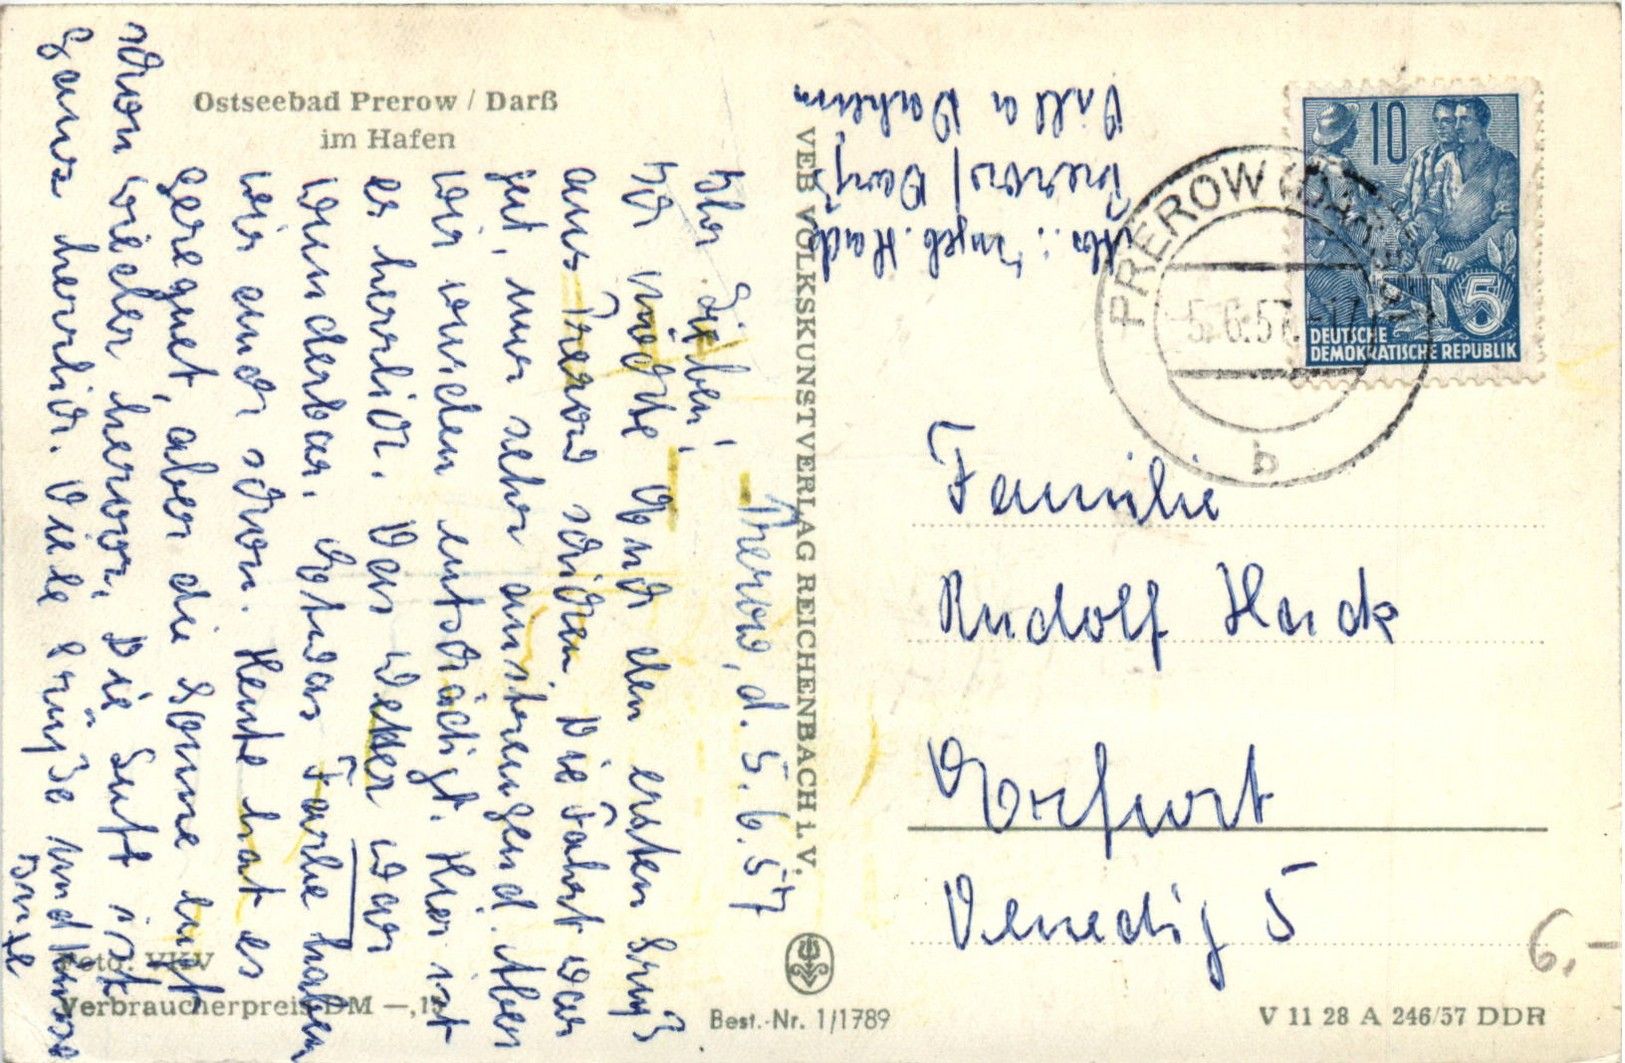 Ostseebad Prerow / Darß
im Hafen
Prerow, d. 5.6.57
Ihr Lieben!
Ich möchte Euch den ersten Gruß
aus Prerow schicken. Die Fahrt war
gut, nur sehr anstrengend. Aber
wir wurden entschädigt. Hier ist
es herrlich. Das Wetter war
wunderbar. Etwas Farbe haben
wir auch schon. Heute hat es
geregnet, aber die Sonne lugt
schon wieder hervor. Die Luft ist
ganz herrlich. Viele Grüße und Küsse
Foto: VKV
Verbraucherpreis DM —,12
VEB VOLKSKUNSTVERLAG REICHENBACH i. V.
Best.-Nr. 1/1789
Abs.: Ingeb. Hack
Prerow/Darß
Villa Daheim
10
5
DEUTSCHE
DEMOKRATISCHE REPUBLIK
PREROW (DARSS)
5.6.57.-17
b
Familie
Rudolf Hack
Erfurt
Venedig 5
6,-
V 11 28 A 246/57 DDR